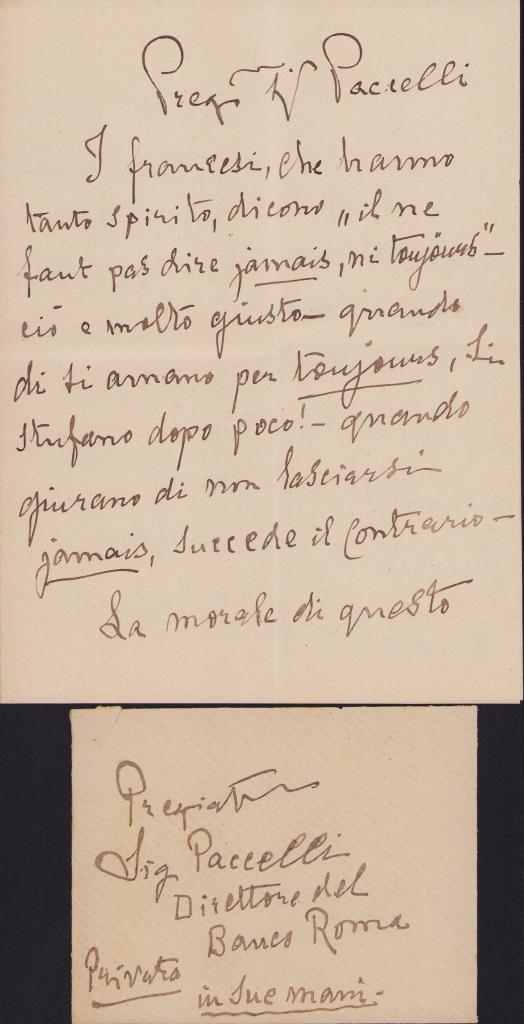 Preg. Sig Paccelli
I francesi, che hanno
tanto spirito, dicono „il ne
faut pas dire jamais, ni toujours"—
ciò e molto giusto— quando
di si amano per toujours, si
stufano dopo poco!— quando
giurano di non lasciarsi
jamais, succede il contrario—
La morale di questo
Pregiat
Sig Paccelli
Direttore del
Banco Roma
Privata
in sue mani.-